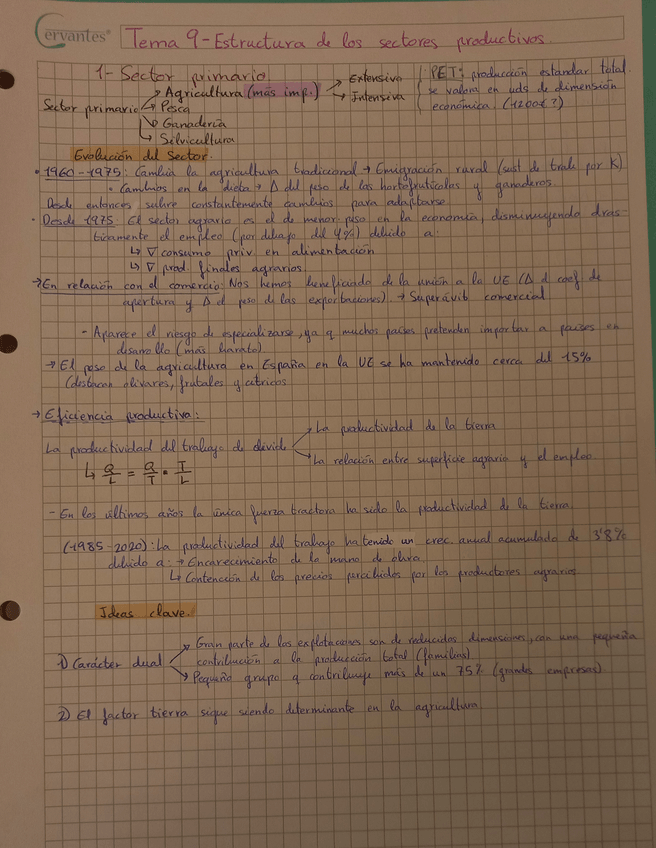 Cervantes®
Tema 9 - Estructura de los sectores productivos.
1- Sector primario
Sector primario → Agricultura (más imp.) → Extensiva
→ Intensiva
→ Pesca
→ Ganadería
→ Silvicultura
PET: producción estandar total.
se valora en uds de dimensión
económica. (1200€?)
Evolución del Sector.
· 1960-1975: Cambia la agricultura tradicional → Emigración rural (sust de trab por K)
· Cambios en la dieta → Δ del peso de las hortofrutícolas y ganaderos.
Desde entonces sufre constantemente cambios para adaptarse
· Desde 1975: El sector agrario es el de menor peso en la economía, disminuyendo dras-
ticamente el empleo (por debajo del 4%) debido a:
↳ ∇ consumo priv en alimentación
↳ ∇ prod. finales agrarios
→ En relación con el comercio: Nos hemos beneficiado de la unión a la UE (Δ d coef de
apertura y Δ d peso de las exportaciones). → Superávit comercial
- Aparece el riesgo de especializarse, ya q muchos países pretenden importar a países en
desarrollo (más barato)
→ El peso de la agricultura en España en la UE se ha mantenido cerca del 15%
(destacan olivares, frutales y cítricos
→ Eficiencia productiva:
La productividad del trabajo se divide → La productividad de la tierra
→ La relación entre superficie agrario y el empleo
↳ Q/L = Q/T · T/L
- En los últimos años la única fuerza tractora ha sido la productividad de la tierra.
(1985-2020): La productividad del trabajo ha tenido un crec. anual acumulado de 3'8%
debido a: → Encarecimiento de la mano de obra
↳ Contención de los precios percibidos por los productores agrarios
Ideas clave.
1) Carácter dual → Gran parte de las explotaciones son de reducidas dimensiones, con una pequeña
contribución a la producción total (familias)
→ Pequeño grupo q contribuye más de un 75% (grandes empresas)
2) El factor tierra sigue siendo determinante en la agricultura